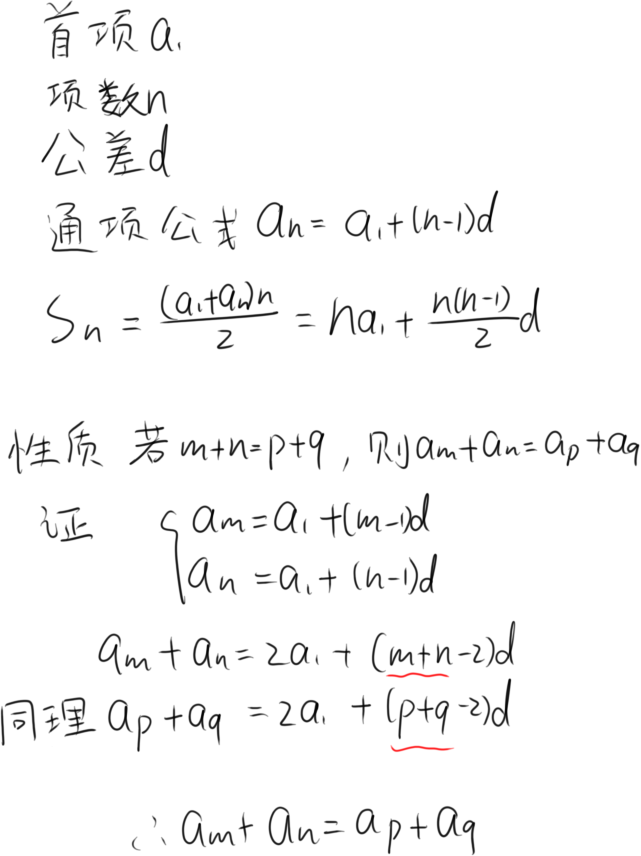 首项a₁
项数n
公差d
通项公式 aₙ = a₁+(n-1)d
Sₙ = (a₁+aₙ)n/2 = na₁ + n(n-1)/2 d
性质 若m+n=p+q, 则am+an=ap+aq
证 { am=a₁+(m-1)d
an=a₁+(n-1)d
am+an=2a₁+(m+n-2)d
同理 ap+aq=2a₁+(p+q-2)d
∴ am+an=ap+aq